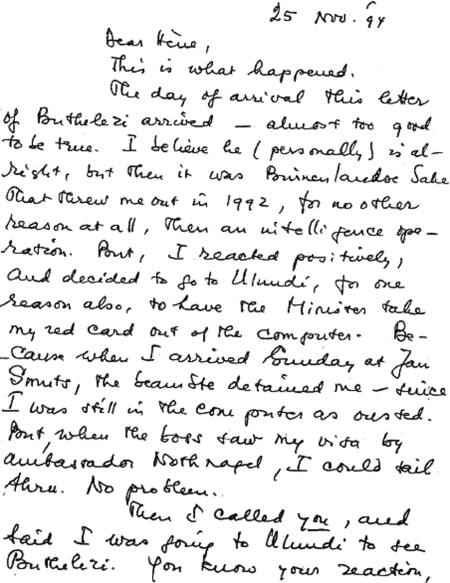 25 Nov. '94
Dear Hène,
This is what happened.
The day of arrival this letter
of Buthelezi arrived — almost too good
to be true. I believe he (personally) is al-
right, but then it was Buinen/andse Sake
that threw me out in 1992, for no other
reason at all, then an intelligence ope-
ration. But, I reacted positively,
and decided to go to Ulundi, for one
reason also, to have the Minister take
my red card out of the computer. Be-
cause when I arrived Sunday at Jan
Smuts, the beambte detained me — since
I was still in the computer as ousted.
But, when the boss saw my visa by
ambassador Nothnagel, I could sail
thru. No problem.
Then I called you, and
said I was going to Ulundi to see
Buthelezi. You know your reaction,